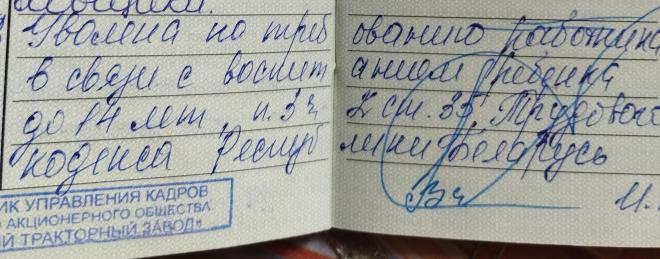 Уволена по требованию работника
в связи с воспитанием ребенка
до 14 лет, п. 3 ч. 2 ст. 35, Трудового
кодекса Республики Беларусь
ИК УПРАВЛЕНИЯ КАДРОВ
АКЦИОНЕРНОГО ОБЩЕСТВА
ИЙ ТРАКТОРНЫЙ ЗАВОД"